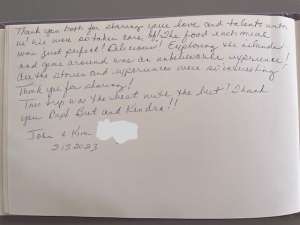 Thank you both for sharing your love and talents with
us! We were so taken care of. The food each meal
was just perfect! Delicious! Exploring the islands
and going around was an unbelievable experience!
All the stories and experiences were so interesting
Thank you for sharing!
This trip was the best with the best! Thank
you Capt Burt and Kendra!!
John & Kim
2/5 2023